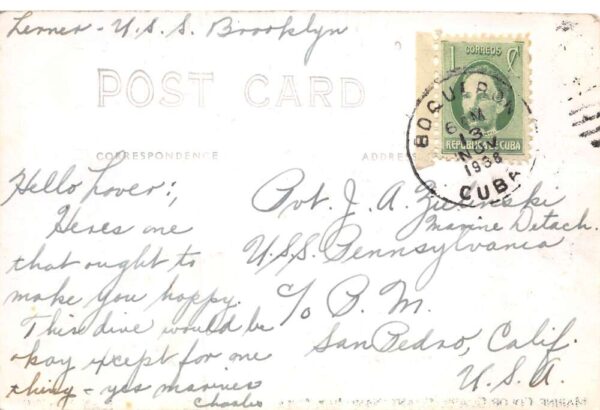 Lerner - U.S.S. Brooklyn
POST CARD
CORRESPONDENCE
ADDRESS
1 CORREOS ¢
REPUBLICA DE CUBA
BOQUERON
6 AM
13
NOV
1938
CUBA
Hello Lover:,
Heres one
that ought to
make you happy.
This dive would be
okay except for one
thing - yes marines
Charles
Pvt. J. A.
Marine Detach.
U.S.S. Pennsylvania
c/o P. M.
San Pedro, Calif.
U.S.A.